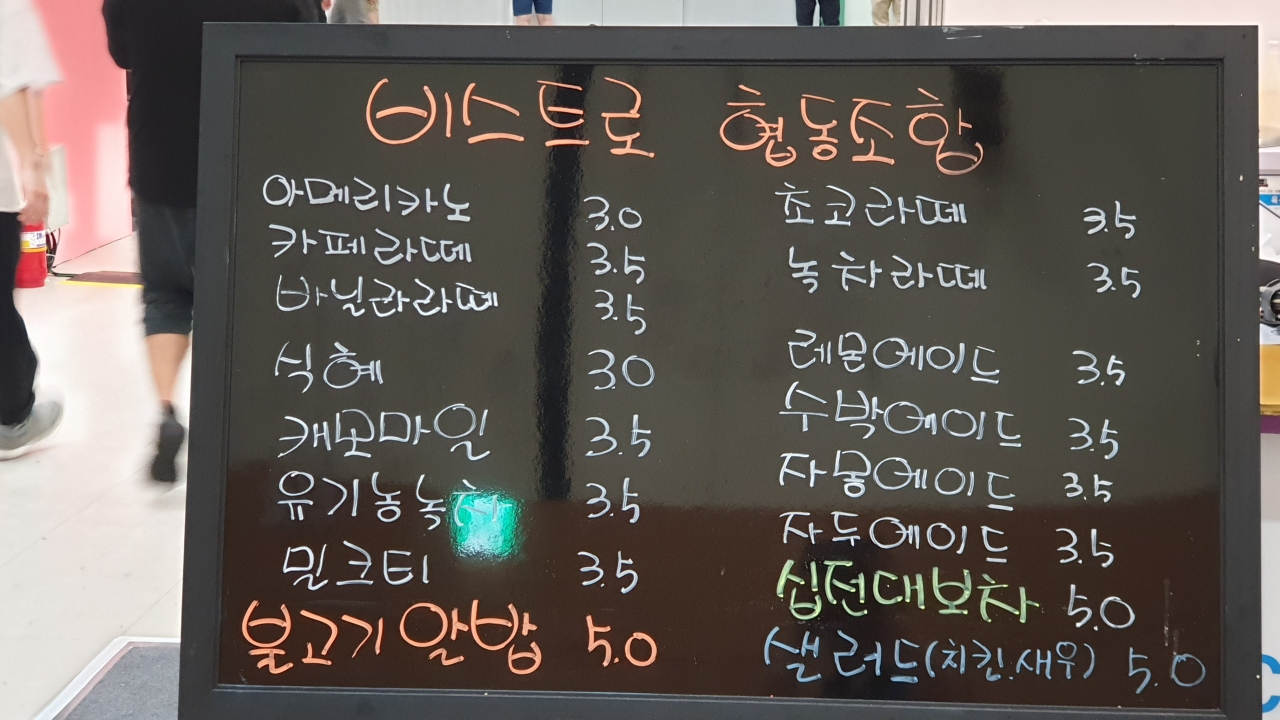 비스트로 협동조합
아메리카노 3.0
카페라떼 3.5
바닐라라떼 3.5
식혜 3.0
캐모마일 3.5
유기농녹차 3.5
밀크티 3.5
불고기알밥 5.0
초코라떼 3.5
녹차라떼 3.5
레몬에이드 3.5
수박에이드 3.5
자몽에이드 3.5
자두에이드 3.5
십전대보차 5.0
샐러드(치킨.새우) 5.0